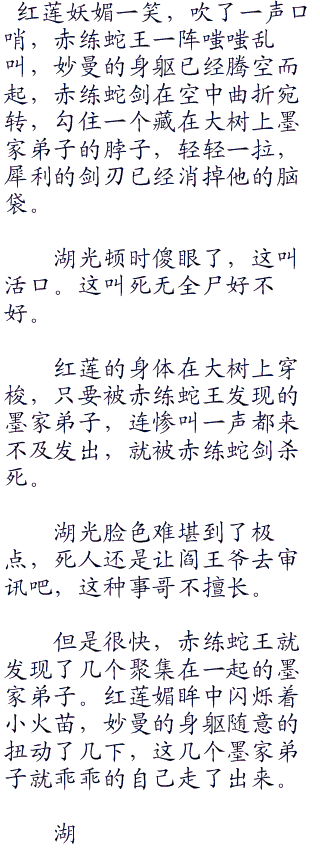 红莲妖媚一笑，吹了一声口
哨，赤练蛇王一阵嗤嗤乱
叫，妙曼的身躯已经腾空而
起，赤练蛇剑在空中曲折宛
转，勾住一个藏在大树上墨
家弟子的脖子，轻轻一拉，
犀利的剑刃已经消掉他的脑
袋。
湖光顿时傻眼了，这叫
活口。这叫死无全尸好不
好。
红莲的身体在大树上穿
梭，只要被赤练蛇王发现的
墨家弟子，连惨叫一声都来
不及发出，就被赤练蛇剑杀
死。
湖光脸色难堪到了极
点，死人还是让阎王爷去审
讯吧，这种事哥不擅长。
但是很快，赤练蛇王就
发现了几个聚集在一起的墨
家弟子。红莲媚眸中闪烁着
小火苗，妙曼的身躯随意的
扭动了几下，这几个墨家弟
子就乖乖的自己走了出来。
湖